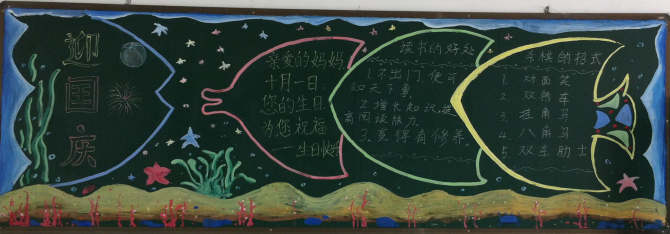 迎
国
庆
亲爱的妈妈
十月一日
您的生日
为您祝福
生日快乐
读书的好处
1.不出门,便可
知天下事.
2.增长知识,提
高阅读能力.
3.变得有修养.
杀棋的招式
1. 对面笑
2. 双将车
3. 挂角马
4. 八角马
5. 双车胁士